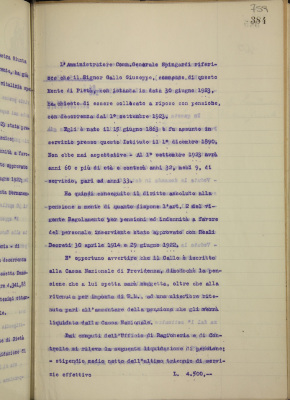 759
384
L'Amministratore Comm. Generale Spingardi riferi-
sce che il Signor Gallo Giuseppe, commesso di questo
Monte di Pietà, con istanza in data 30 giugno 1923,
ha chiesto di essere collocato a riposo con pensione,
con decorrenza dal 1° settembre 1923.
Egli è nato il 15 giugno 1863 e fu assunto in
servizio presso questo Istituto il 1° dicembre 1890.
Non ebbe mai aspettative - Al 1° settembre 1923 avrà
anni 60 e più di età e conterà anni 32, mesi 9, di
servizio, pari ad anni 33.
Ha quindi conseguito il diritto assoluto alla
pensione a mente di quanto dispone l'art. 2 del vi-
gente Regolamento per pensioni ed indennità a favore
del personale inserviente stato approvato con Reali
Decreti 30 aprile 1914 e 29 giugno 1922.
E' opportuno avvertire che il Gallo è iscritto
alla Cassa Nazionale di Previdenza, dimodochè la pen-
sione che a lui spetta sarà soggetta, oltre che alla
ritenuta per imposta di R.M., ad una ulteriore rite-
nuta pari all'ammontare della pensione che gli sarà
liquidata dalla Cassa Nazionale.
Dai conteggi dell'Ufficio di Ragioneria e di Com-
putista si rileva la seguente liquidazione di pensione:
- stipendio medio unito dell'ultimo triennio di servi-
zio effettivo L. 4.500,--